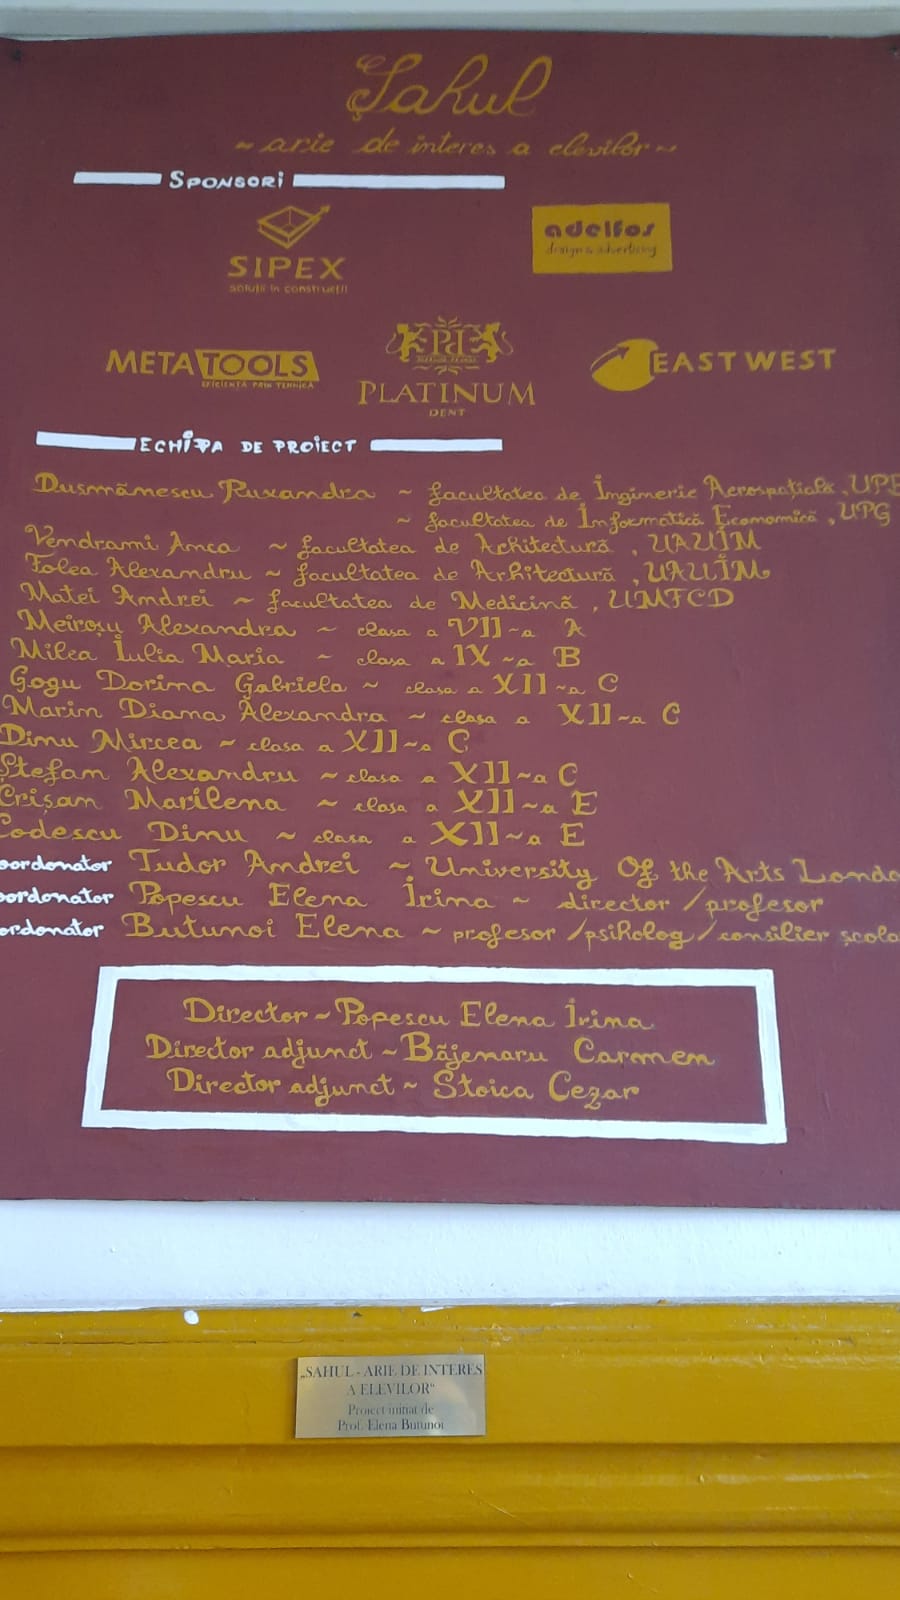 Șahul
~ arie de interes a elevilor ~
SPONSORI
SIPEX
soluții în construcții
adelfos
design & advertising
METATOOLS
EFICIENȚĂ PRIN TEHNICĂ
PLATINUM
DENT
EASTWEST
ECHIPA DE PROIECT
Dusmănescu Ruxandra ~ facultatea de Inginerie Aerospațială, UPB
~ facultatea de Informatică Economică, UPG
Vendrami Anca ~ facultatea de Arhitectură, UAUIM
Folea Alexandru ~ facultatea de Arhitectură, UAUIM
Matei Andrei ~ facultatea de Medicină, UMFCD
Meiroșu Alexandra ~ clasa a VII~a A
Milea Iulia Maria ~ clasa a IX~a B
Gogu Dorina Gabriela ~ clasa a XII~a C
Marin Diana Alexandra ~ clasa a XII~a C
Dinu Mircea ~ clasa a XII~a C
Ștefan Alexandru ~ clasa a XII~a C
Crișan Marilena ~ clasa a XII~a E
Codescu Dinu ~ clasa a XII~a E
oordonator Tudor Andrei ~ University Of the Arts Londo
oordonator Popescu Elena Irina ~ director / profesor
ordonator Butunoi Elena ~ profesor / psiholog / consilier școla
Director ~ Popescu Elena Irina
Director adjunct ~ Băjenaru Carmen
Director adjunct ~ Stoica Cezar
„SAHUL - ARIE DE INTERES
A ELEVILOR"
Proiect initiat de
Prof. Elena Butunoi